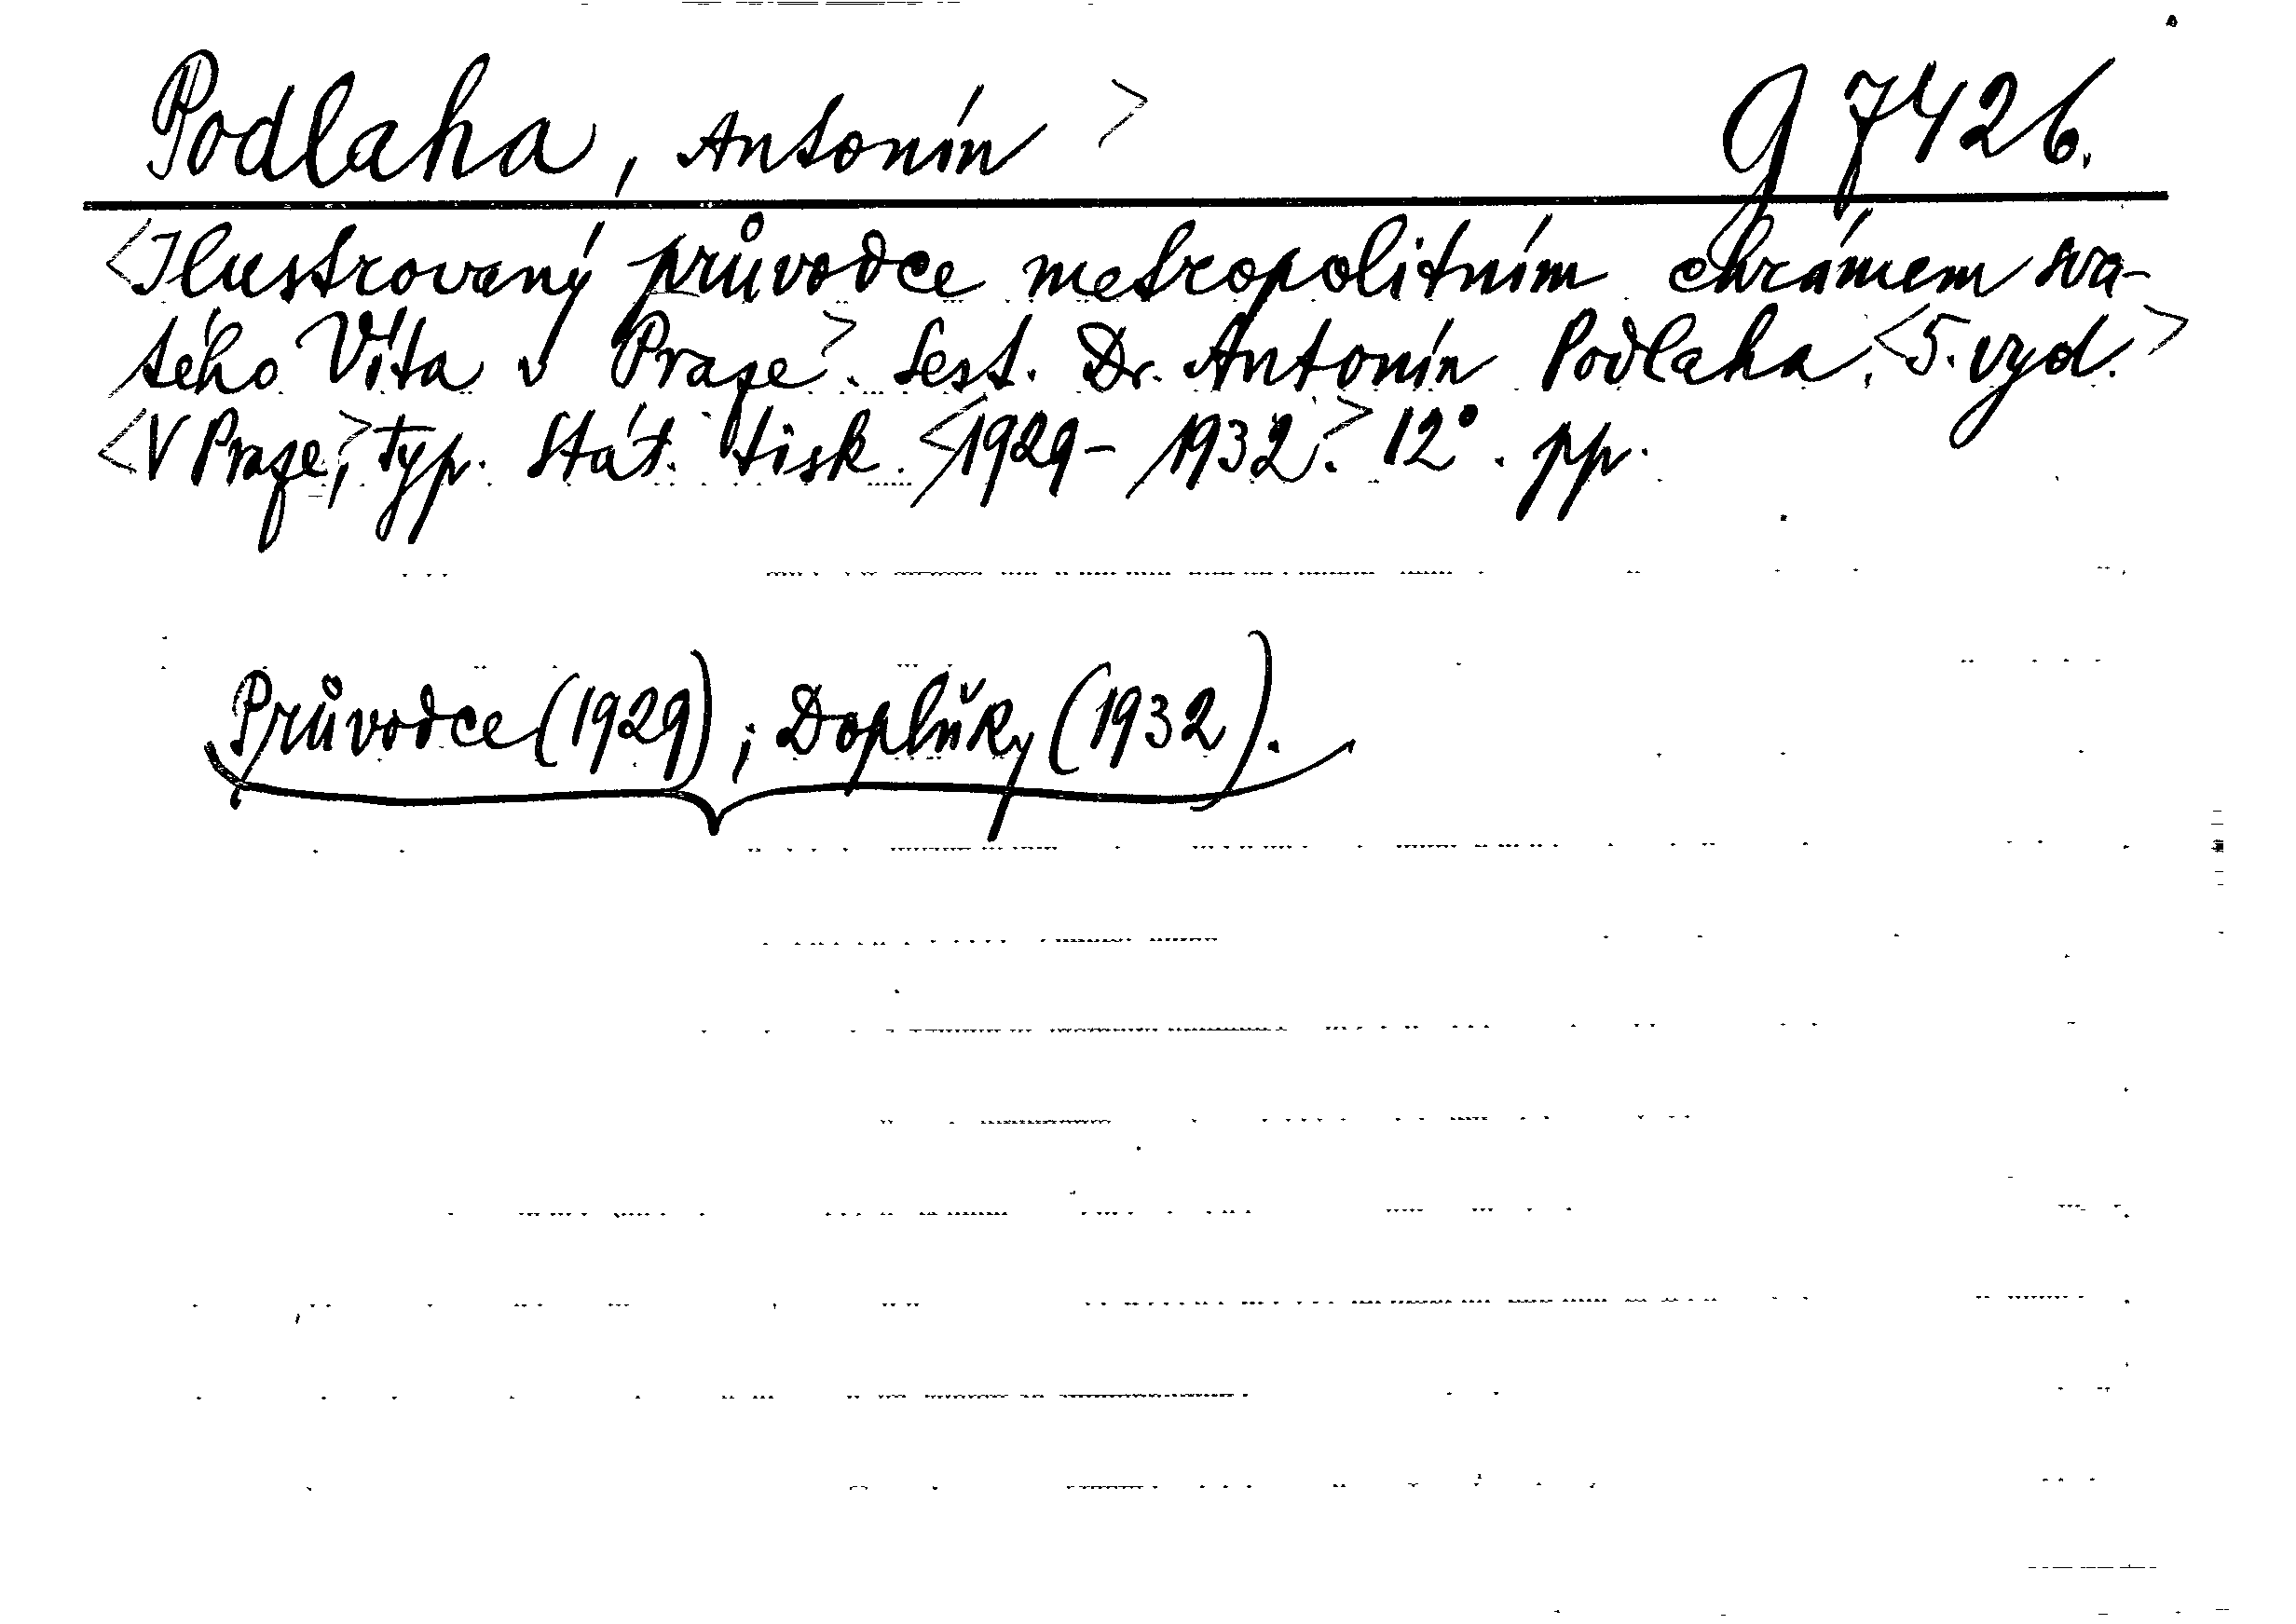 Podlaha, Antonín > g 7426.
<Ilustrovaný průvodce metropolitním chrámem sva-
tého Víta v Praze>. Sest. Dr. Antonín Podlaha. <5. vyd.>
<V Praze,> typ. Stát. tisk. <1929-1932.> 12°. pp.
Průvodce (1929); Doplňky (1932).